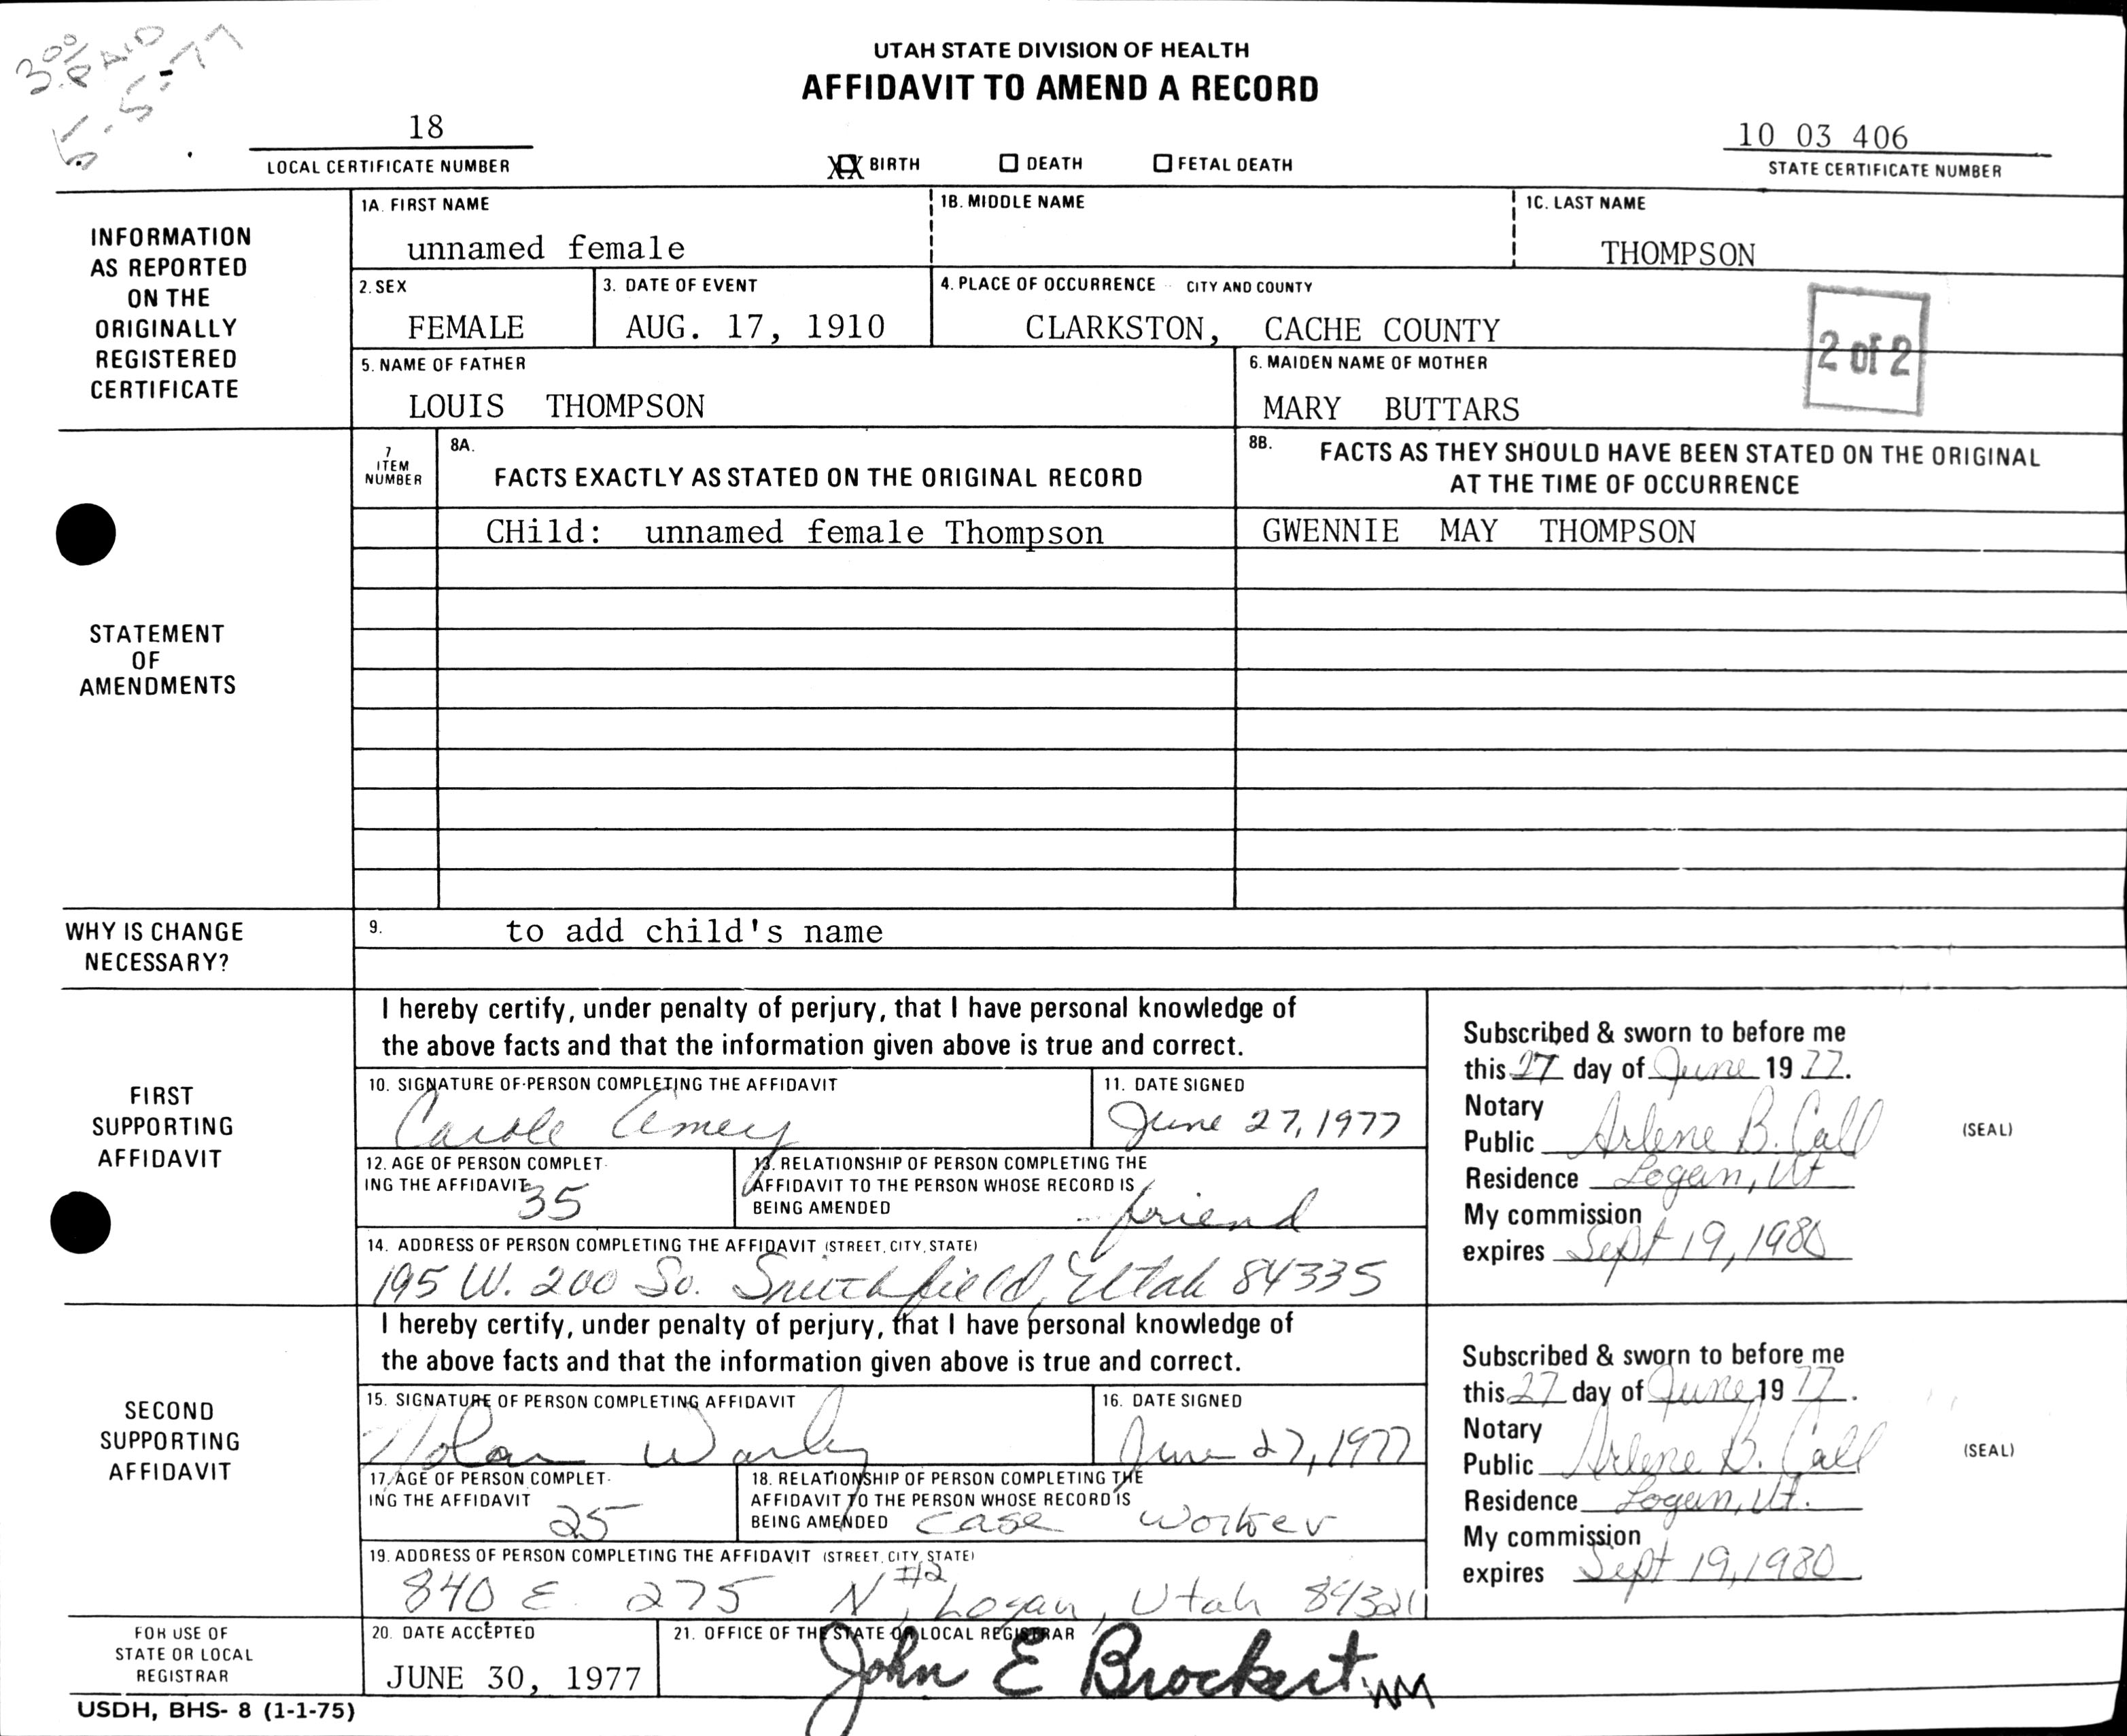 300
PAID
5-5-77
UTAH STATE DIVISION OF HEALTH
AFFIDAVIT TO AMEND A RECORD
18
LOCAL CERTIFICATE NUMBER
XX BIRTH ☐ DEATH ☐ FETAL DEATH
10 03 406
STATE CERTIFICATE NUMBER
INFORMATION
AS REPORTED
ON THE
ORIGINALLY
REGISTERED
CERTIFICATE
1A. FIRST NAME 1B. MIDDLE NAME 1C. LAST NAME
unnamed female THOMPSON
2. SEX 3. DATE OF EVENT 4. PLACE OF OCCURRENCE CITY AND COUNTY
FEMALE AUG. 17, 1910 CLARKSTON, CACHE COUNTY
2 of 2
5. NAME OF FATHER 6. MAIDEN NAME OF MOTHER
LOUIS THOMPSON MARY BUTTARS
STATEMENT
OF
AMENDMENTS
7
ITEM
NUMBER
8A.
FACTS EXACTLY AS STATED ON THE ORIGINAL RECORD
8B. FACTS AS THEY SHOULD HAVE BEEN STATED ON THE ORIGINAL
AT THE TIME OF OCCURRENCE
CHild: unnamed female Thompson GWENNIE MAY THOMPSON
WHY IS CHANGE
NECESSARY?
9. to add child's name
FIRST
SUPPORTING
AFFIDAVIT
I hereby certify, under penalty of perjury, that I have personal knowledge of
the above facts and that the information given above is true and correct.
10. SIGNATURE OF PERSON COMPLETING THE AFFIDAVIT 11. DATE SIGNED
Carole Amey June 27, 1977
12. AGE OF PERSON COMPLET-
ING THE AFFIDAVIT 35
13. RELATIONSHIP OF PERSON COMPLETING THE
AFFIDAVIT TO THE PERSON WHOSE RECORD IS
BEING AMENDED friend
14. ADDRESS OF PERSON COMPLETING THE AFFIDAVIT (STREET, CITY, STATE)
195 W. 200 So. Smithfield, Utah 84335
Subscribed & sworn to before me
this 27 day of June 1977.
Notary
Public Arlene B. Call (SEAL)
Residence Logan, Ut
My commission
expires Sept 19, 1980
SECOND
SUPPORTING
AFFIDAVIT
I hereby certify, under penalty of perjury, that I have personal knowledge of
the above facts and that the information given above is true and correct.
15. SIGNATURE OF PERSON COMPLETING AFFIDAVIT 16. DATE SIGNED
Nolan June 27, 1977
17. AGE OF PERSON COMPLET-
ING THE AFFIDAVIT
25
18. RELATIONSHIP OF PERSON COMPLETING THE
AFFIDAVIT TO THE PERSON WHOSE RECORD IS
BEING AMENDED case worker
19. ADDRESS OF PERSON COMPLETING THE AFFIDAVIT (STREET, CITY, STATE)
840 E. 275 N #12, Logan, Utah 84321
Subscribed & sworn to before me
this 27 day of June 1977.
Notary
Public Arlene B. Call (SEAL)
Residence Logan, Ut.
My commission
expires Sept 19, 1980
FOR USE OF
STATE OR LOCAL
REGISTRAR
20. DATE ACCEPTED 21. OFFICE OF THE STATE OR LOCAL REGISTRAR
JUNE 30, 1977 John E Brockert
USDH, BHS- 8 (1-1-75)